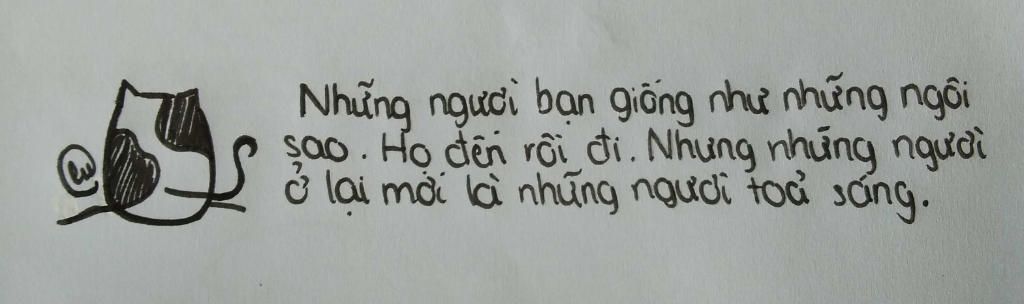 Những người bạn giống như những ngôi
sao. Họ đến rồi đi. Nhưng những người
ở lại mới là những người toả sáng.